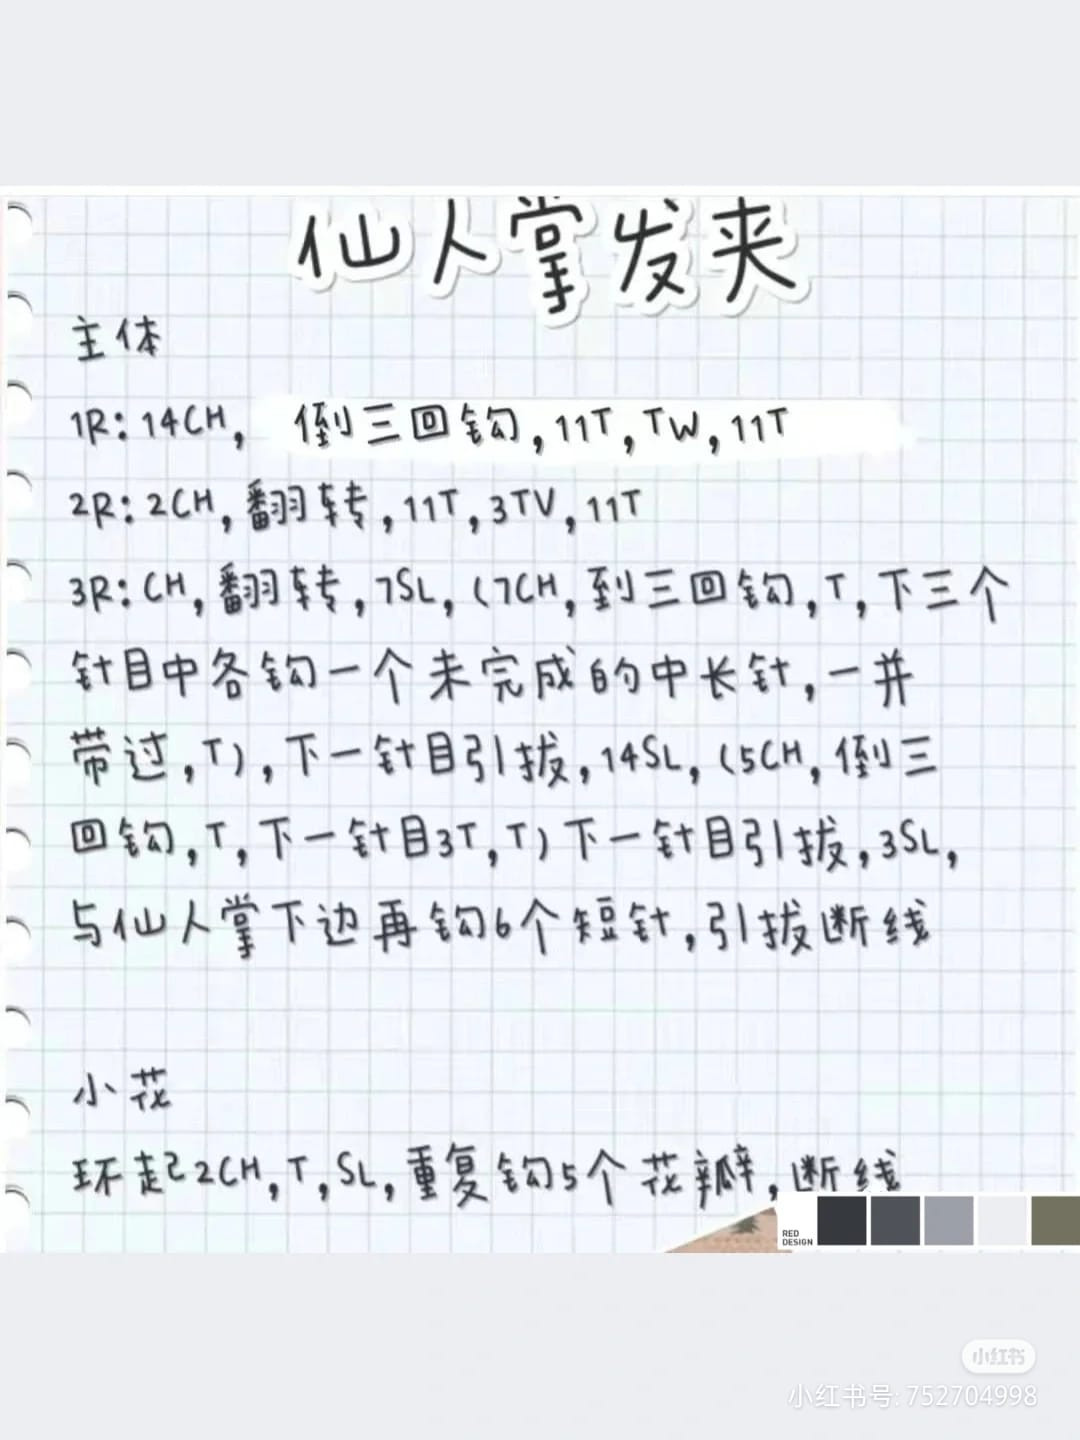 仙人掌发夹
主体
1R:14CH, 倒三回钩,11T,TW,11T
2R:2CH,翻转,11T,3TV,11T
3R:CH,翻转,7SL,(7CH,到三回钩,T,下三个
针目中各钩一个未完成的中长针,一并
带过,T),下一针目引拔,14SL,(5CH,倒三
回钩,T,下一针目3T,T)下一针目引拔,3SL,
与仙人掌下边再钩6个短针,引拔断线
小花
环起2CH,T,SL,重复钩5个花瓣,断线
RED
DESIGN
小红书
小红书号: 752704998